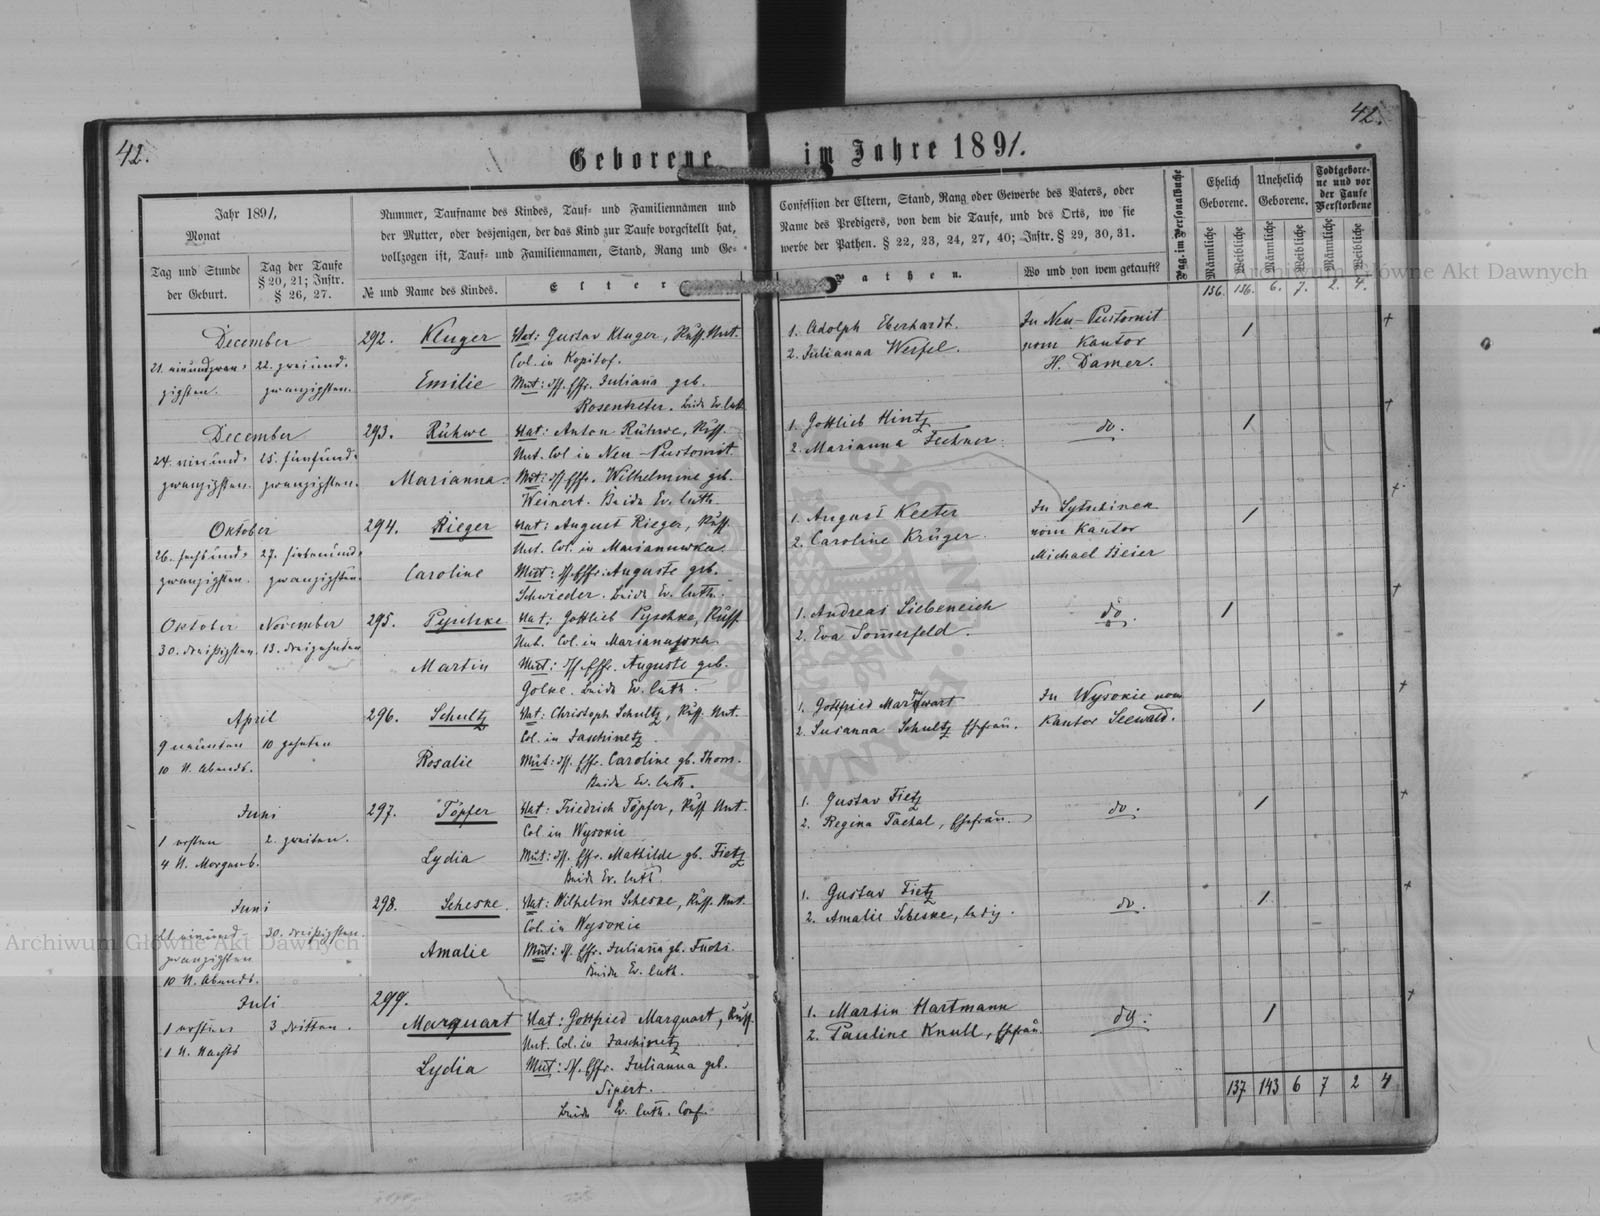 42.
42.
Geborene im Jahre 1891.
Jahr 1891,
Monat
Tag und Stunde
der Geburt.
Tag der Taufe
§ 20, 21; Instr.
§ 26, 27.
Nummer, Taufname des Kindes, Tauf- und Familiennamen und
der Mutter, oder desjenigen, der das Kind zur Taufe vorgestellt hat,
vollzogen ist, Tauf- und Familiennamen, Stand, Rang und Ge-
№ und Name des Kindes.
Elter
Confession der Eltern, Stand, Rang oder Gewerbe des Vaters, oder
Name des Predigers, von dem die Taufe, und des Orts, wo sie
werbe der Pathen. § 22, 23, 24, 27, 40; Instr. § 29, 30, 31.
Pathen.
Wo und von wem getauft?
Pag. im Personalbuche
Ehelich
Geborene.
Unehelich
Geborene.
Todtgebore-
ne und vor
der Taufe
Verstorbene
Männliche
Weibliche
Männliche
Weibliche
Männliche
Weibliche
136. 136. 6. 7. 2. 4.
December
21. einundzwan-
zigsten.
22. zweiund-
zwanzigsten.
292. Kluger
Emilie
Vat: Gustav Kluger, Russ. Unt.
Col. in Kopitof.
Mut: dss. Ehfr. Julianna geb.
Rosentreter. Beide Ev. luth.
1. Adolph Eberhardt.
2. Julianna Werfel.
In Neu-Pustomit
vom Kantor
H. Damer.
December
24. vierund-
zwanzigsten.
25. fünfund-
zwanzigsten.
293. Rühwe
Marianna.
Vat: Anton Rühwe, Russ.
Unt. Col in Neu-Pustomit.
Mut: dss Ehfr. Wilhelmine geb.
Weinert. Beide Ev. luth.
1. Gottlieb Hintz
2. Marianna Fechner.
do.
Oktober
26. sechsund-
zwanzigsten.
27. siebenund-
zwanzigsten.
294. Rieger
Caroline
Vat: August Rieger, Russ.
Unt. Col. in Marianuwka.
Mut: dss. Ehfr. Auguste geb.
Schwieder. Beide Ev. luth.
1. August Keeter
2. Caroline Krüger.
vom Kantor
Michael Beier
Oktober
30. dreißigsten.
November
13. dreizehnten
295. Pyschke
Martin
Vat: Gottlieb Pyschke, Russ
Unt. Col. in Marianufka.
Mut: dss. Ehfr. Auguste geb.
Golke. Beide Ev. luth.
1. Andreas Liebeneich
2. Eva Sommerfeld.
do.
April
9 neunten
10 U. Abends.
10 zehnten
296. Schultz
Rosalie
Vat: Christoph Schultz, Russ. Unt.
Col. in Jaschinetz.
Mut: dss. Ehfr. Caroline gb. Thom.
Beide Ev. luth.
1. Gottfried Marquwart
2. Susanna Schultz Ehefrau.
In Wysokie vom
Kantor Seewald.
Juni
1 ersten
4 U. Morgens.
2. zweiten.
297. Töpfer
Lydia
Vat: Friedrich Töpfer, Russ Unt.
Col in Wysokie
Mut: dss. Ehfr. Mathilde gb. Fietz
Beide Ev. luth.
1. Gustav Fietz
2. Regina Tackal, Ehefrau.
do.
Juni
21 einund-
zwanzigsten
10 U. Abends.
30. dreißigsten.
298. Scheske.
Amalie
Vat: Wilhelm Scheske, Russ. Unt.
Col. in Wysokie
Mut: dss. Ehfr. Julianna gb. Fuchs.
Beide Ev. luth.
1. Gustav Fietz
2. Amalie Scheske, ledig.
do.
Juli
1 ersten
1 U. Nachts
3 dritten.
299.
Marquart
Lydia
Vat: Gottfried Marquart, Russ.
Unt. Col. in Jaschinetz
Mut: dss. Ehfr. Julianna geb.
Sipert.
Beide Ev. luth. Conf.
1. Martin Hartmann
2. Pauline Knull, Ehefrau.
do.
137 143 6 7 2 4
Archiwum Główne Akt Dawnych
Archiwum Główne Akt Dawnych